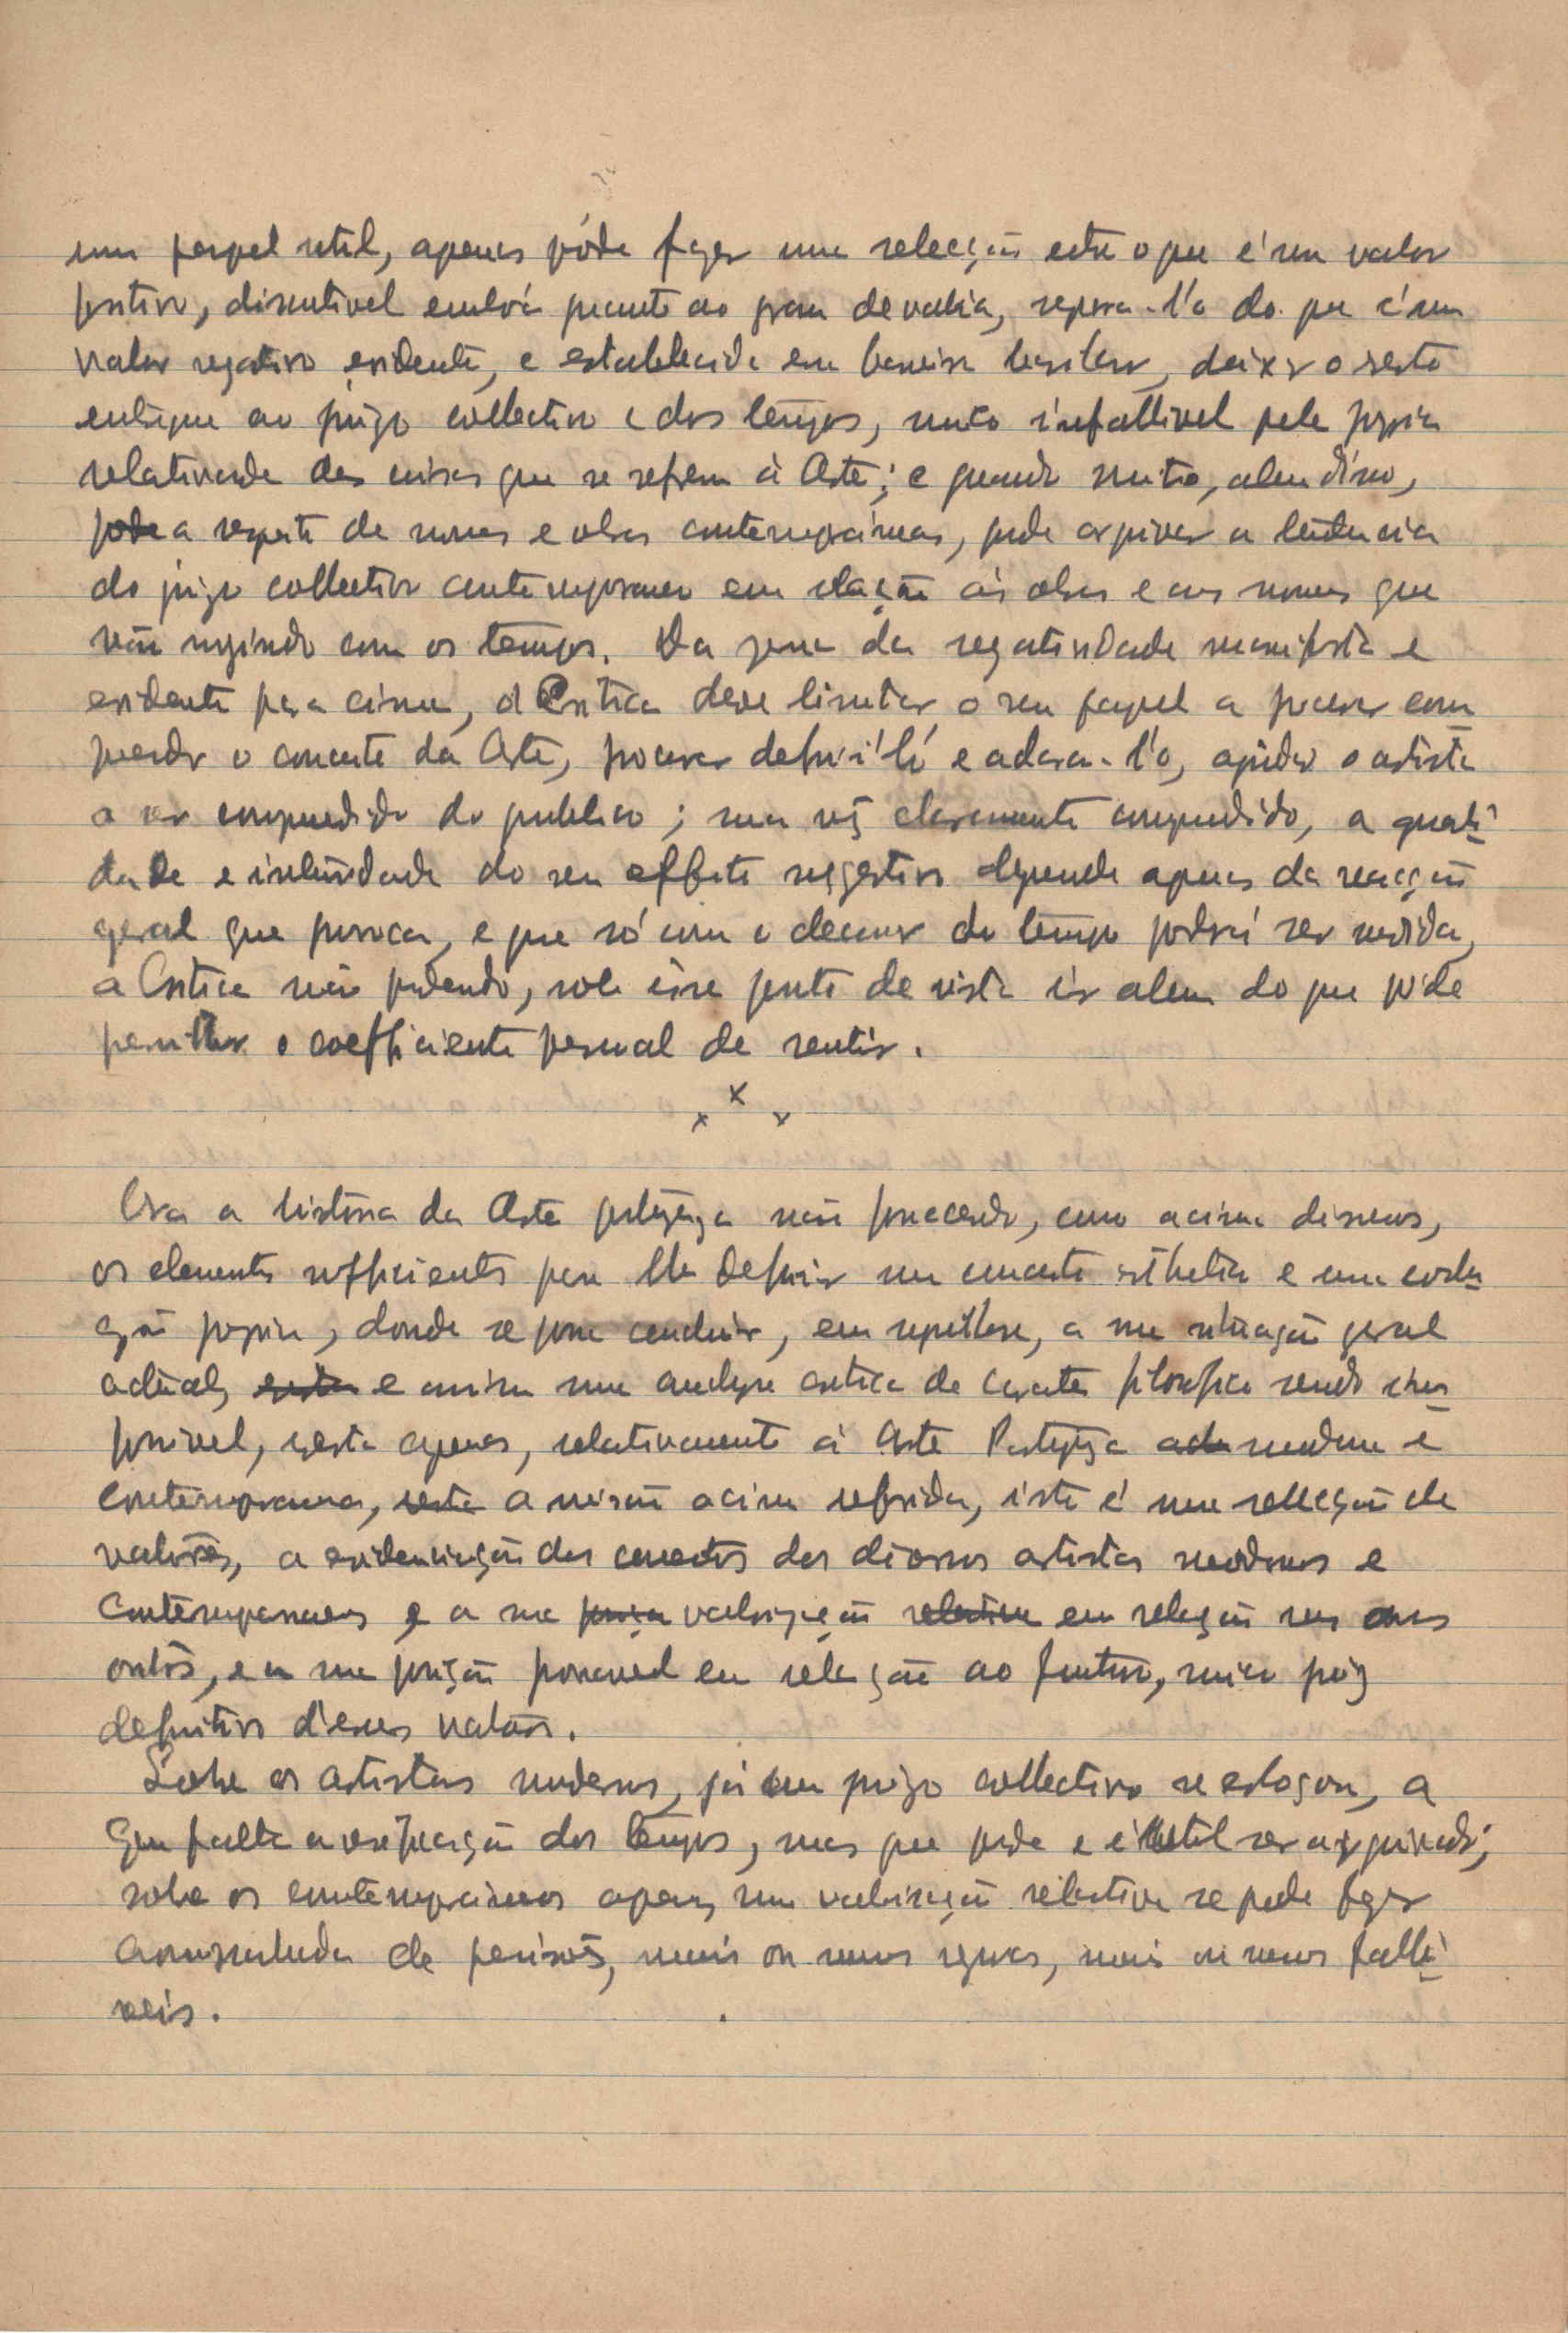 um papel util, apenas póde fazer uma selecção entre o que é um valor
positivo, discutivel embora quanto ao grau de valia, separa-l'o do que é um
valor negativo evidente, e estabelecida essa barreira basilar, deixar o resto
entregue ao juizo collectivo e dos tempos, unico infallivel pela propria
relatividade das coisas que se referem á Arte; e quando muito, alem disso,
a respeito de nomes e obras contemporaneas, pode arquivar a tendencia
do juizo collectivo contemporaneo em relação ás obras e aos nomes que
vão surgindo com os tempos. Da zona da negatividade manifesta e
evidente para cima, a Critica deve limitar o seu papel a procurar com
o conceito da Arte, procurar defini-l'o e aclara-l'o, ajudar o artista
a ser comprendido do publico; uma vez claramente comprendido, a quali-
dade e intensidade do seu effeito suggestivo depende apenas da reacção
geral que provoca, e que só com o decorrer do tempo poderá ser medida,
a Critica não podendo, sob esse ponto de vista ir alem do que póde
permittir o coefficiente pessoal de sentir.
x x x
Ora a historia da Arte portugueza não fornecendo, como acima dissemos,
os elementos sufficientes para se lhe definir um conceito esthetico e uma evolu-
ção propria, donde se possa concluir, em synthese, a sua situação geral
actual, e assim uma analyse critica de caracter filosofico sendo im-
possivel, resta apenas, relativamente á Arte Portugueza moderna e
contemporanea, a missão acima referida, isto é uma selecção de
valores, a evidenciação dos conceitos dos diversos artistas modernos e
contemporaneos e a sua valorização em relação uns aos
outros, e a sua posição provavel em relação ao futuro, unico juiz
definitivo d'esses valores.
Sobre os artistas modernos, já um juizo collectivo se esboçou, a
que falta a verificação dos tempos, mas que pode e é util ser arquivado;
sobre os contemporaneos apenas uma valorisação relativa se pode fazer
acompanhada de previsões, mais ou menos seguras, mais ou menos falli-
veis.